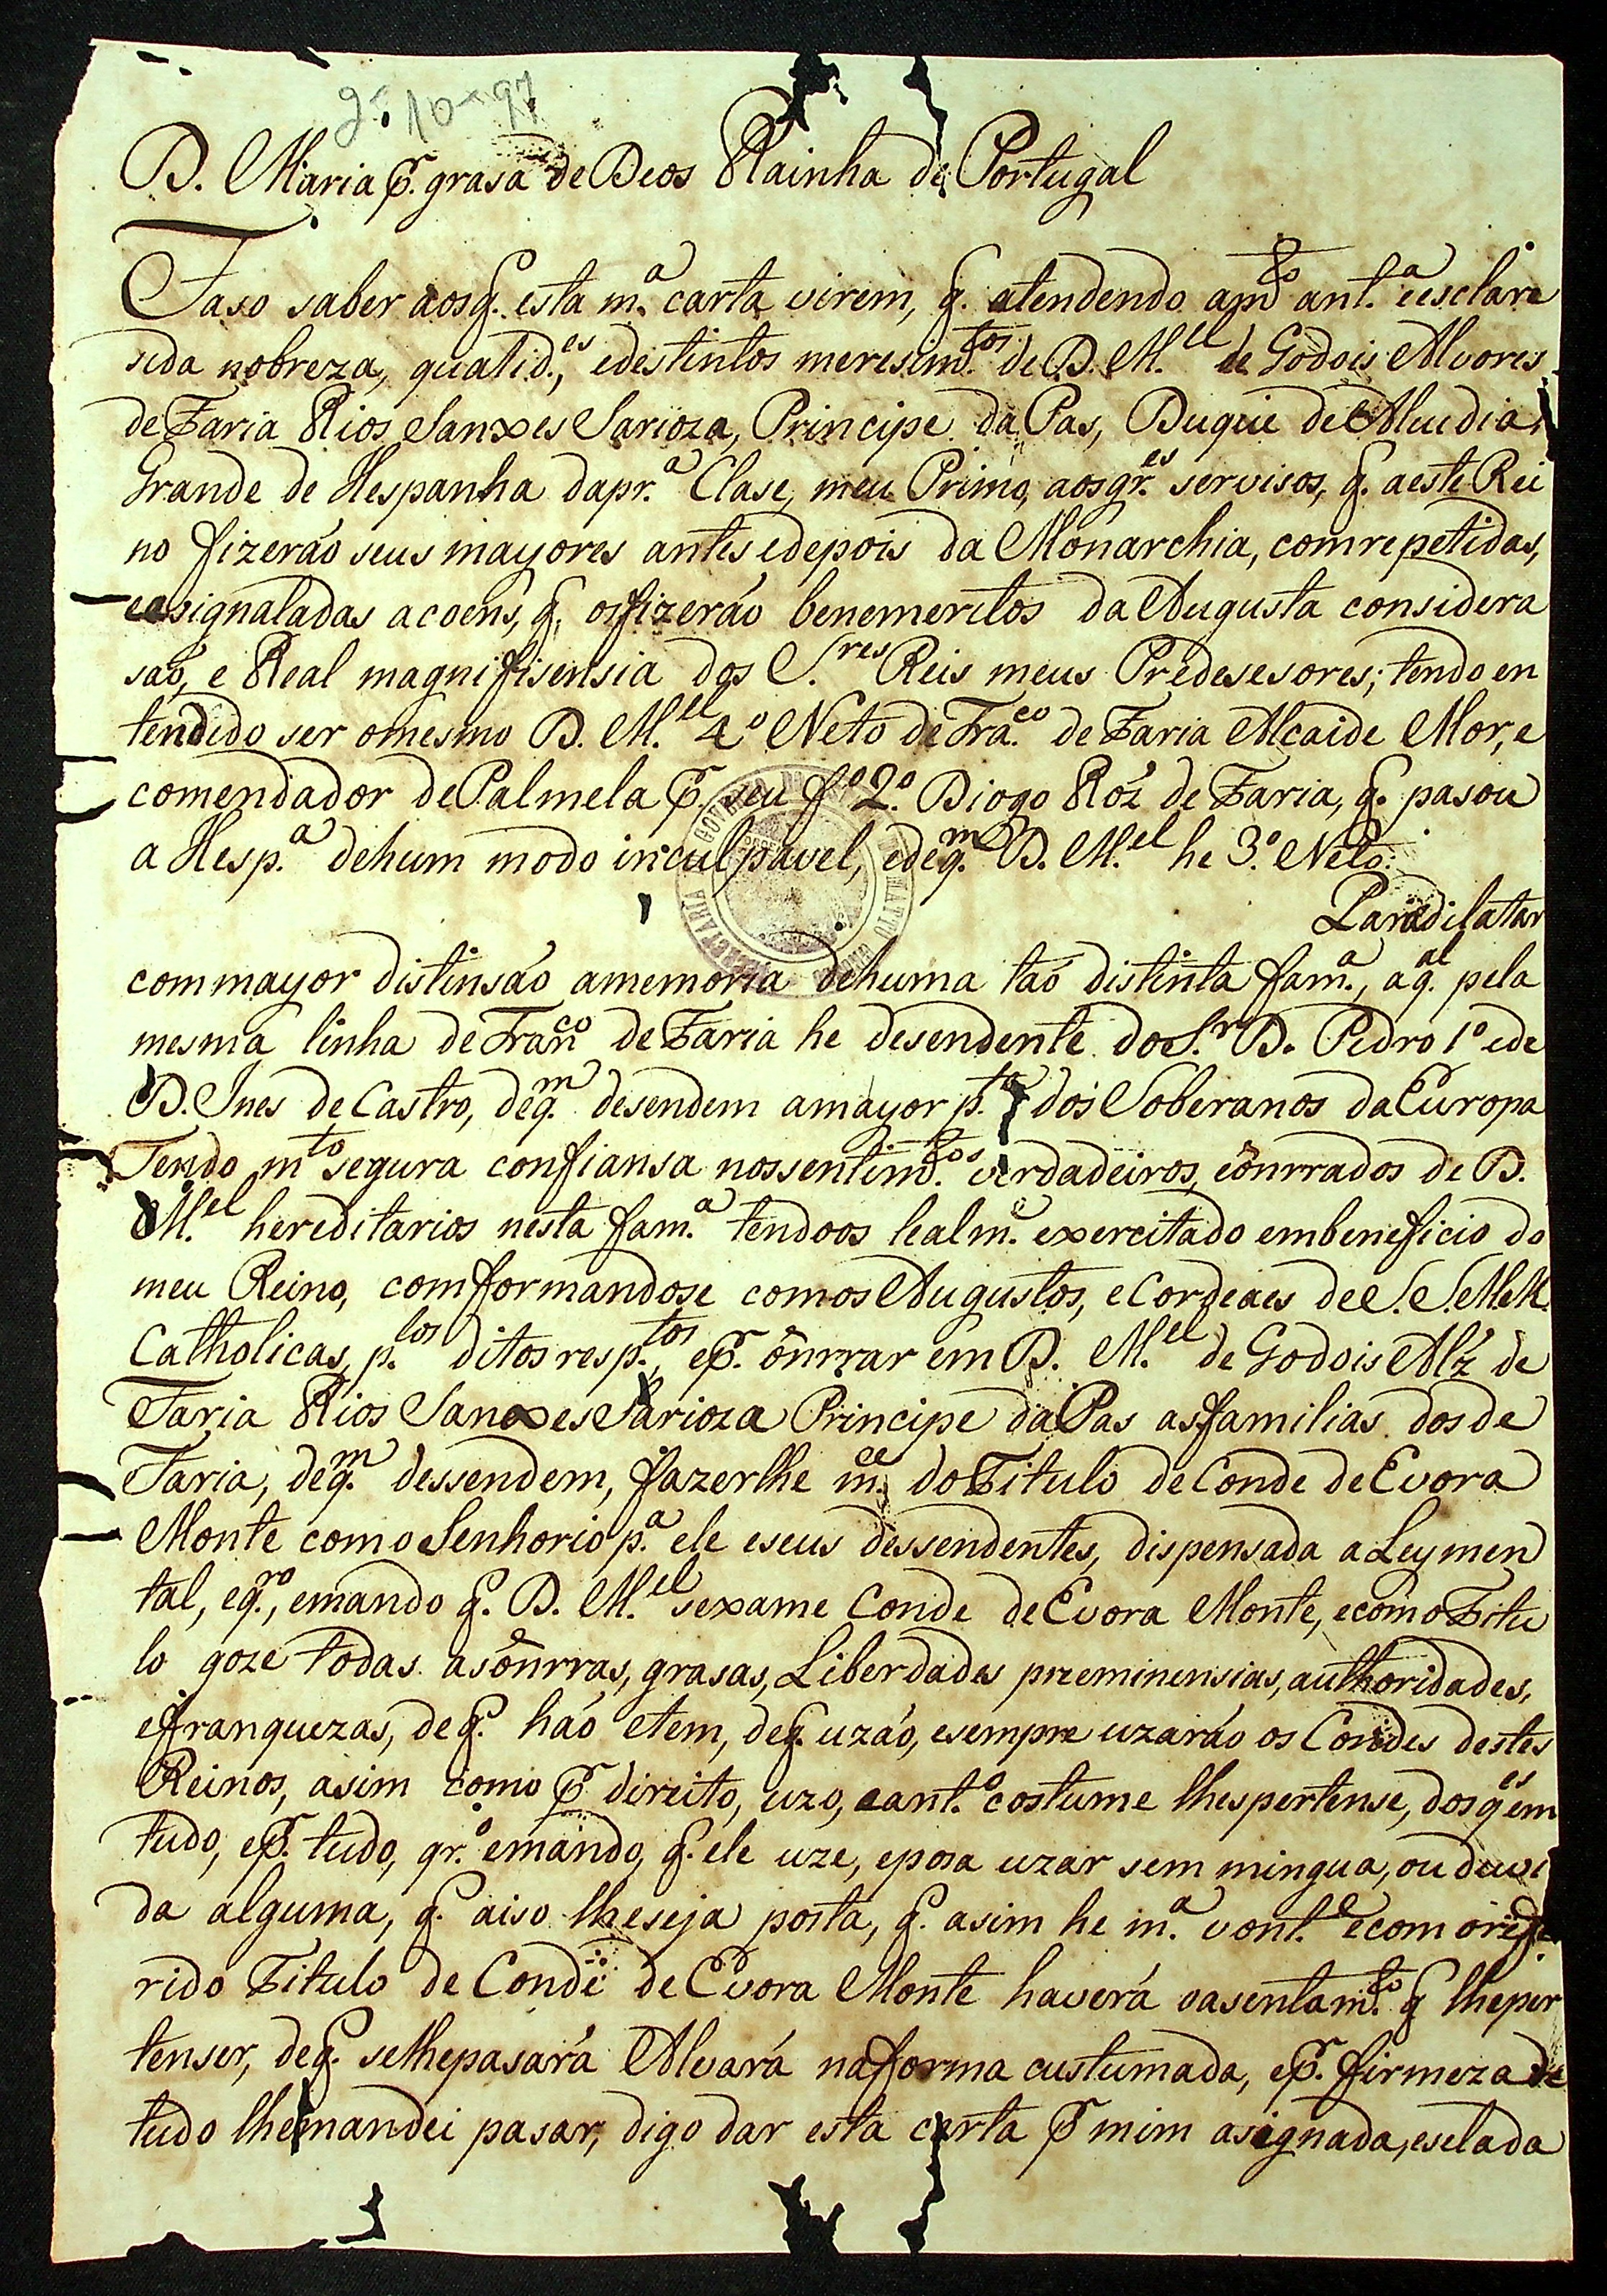 9-10-97
D. Maria p.r grasa de Deos Rainha de Portugal
Faso saber aos q. esta m.a carta virem, q. atendendo a m.to ant.a e esclare
sida nobreza, qualid.es, e destintos meresim.tos de D. M.el de Godois Alvores
de Faria Rios Sanxes Sarioza, Principe da Pas, Duque de Aludia,
Grande de Hespanha da pr.a Clase, meu Primo, aos gr.es servisos, q. a este Rei
no fizeraó seus mayores antes e depois da Monarchia, com repetidas,
e asignaladas acoens, q. os fizeraó benemeritos da Augusta considera
saó, e Real magnifisensia dos S.res Reis meus Predesesores; tendo en
tendido ser o mesmo D. M.el 4.o Neto de Fra.co de Faria Alcaide Mor, e
comendador de Palmela p.r seu f.o 2.o Diogo Róz de Faria, q. pasou
a Hesp.a de hum modo inculpavel, e de q.m D. M.el he 3.o Neto:
Para dilatar
com mayor distinsaó a memoria de huma taó distinta fam.a, a q.al pela
mesma linha de Fran.co de Faria he desendente do S.r D. Pedro 1.o e de
D. Ines de Castro, de q.m desendem a mayor p.te dos Soberanos da Europa
Tendo m.to segura confiansa nos sentim.tos verdadeiros, e ônrrados de D.
M.el hereditarios nesta fam.a tendo os lealm.e exercitado em beneficio do
meu Reino, comformandose com os Augustos, e Cordeaes de S. S. M. M.
Catholicas, p.los ditos resp.tos, e p.r ônrrar em D. M.el de Godois Alz de
Faria Rios Sanxes Sarioza Principe da Pas as familias dos de
Faria, de q.m dessendem, fazerlhe m.ce do Titulo de Conde de Evora
Monte com o Senhorio p.a ele e seus dessendentes, dispensada a Ley men
tal, e q.ro, e mando q. D. M.el se xame Conde de Evora Monte, e com o Titu
lo goze todas as ônrras, grasas, Liberdades preeminensias, authoridades,
e franquezas, de q. haó e tem, de q. uzaó, e sempre uzaráo os Condes destes
Reinos, asim como p.r direito, uzo, e ant.o costume lhes pertense, dos q.es em
tudo, e p.r tudo, qr.o e mando, q. ele uze, e posa uzar sem mingua, ou duvi
da alguma, q. a iso lhe seja posta, q. asim he m.a vont.e e com o refe
rido Titulo de Conde de Evora Monte haverá o asentam.to q lhe per
tenser, de q. se lhe pasará Alvará na forma custumada, e p.r firmeza de
tudo lhe mandei pasar, digo dar esta carta p.r mim asignada, e selada